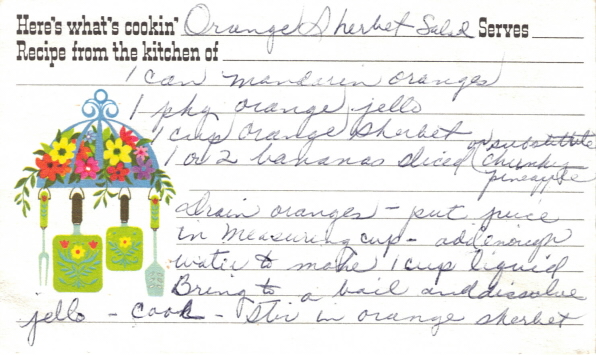 Here's what's cookin' Orange Sherbet Salad Serves
Recipe from the kitchen of
1 can manderin oranges
1 pkg orange jello
1 cup orange sherbet
1 or 2 bananas sliced or substitute
chunky
pineapple
Drain oranges - put juice
in measuring cup - add enough
water to make 1 cup liquid
Bring to a boil and dissolve
jello - cook - Stir in orange sherbet